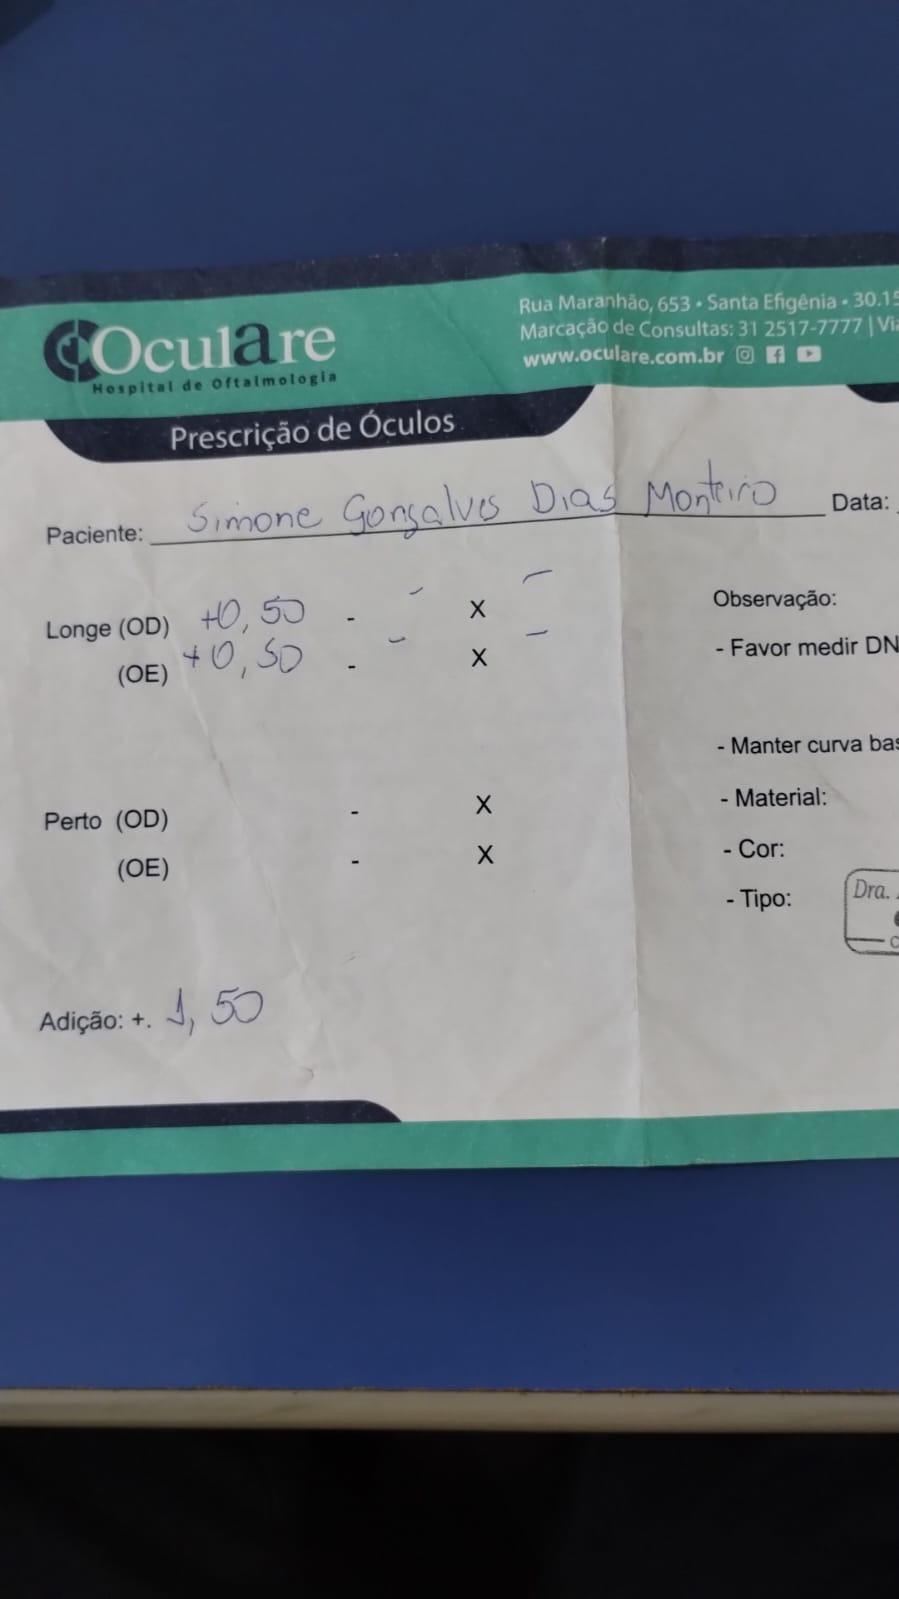 Oculare
Hospital de Oftalmologia
Rua Maranhão, 653 • Santa Efigênia • 30.15
Marcação de Consultas: 31 2517-7777 | Via
www.oculare.com.br
Prescrição de Óculos
Paciente: Simone Gonçalves Dias Monteiro Data:
Longe (OD) +0,50 - - X -
(OE) +0,50 - - X -
Perto (OD) - X
(OE) - X
Adição: +. 1,50
Observação:
- Favor medir DN
- Manter curva bas
- Material:
- Cor:
- Tipo:
Dra.